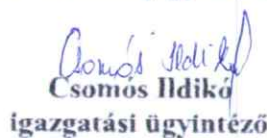 Csomós Ildikó
Csomós Ildikó
igazgatási ügyintéző